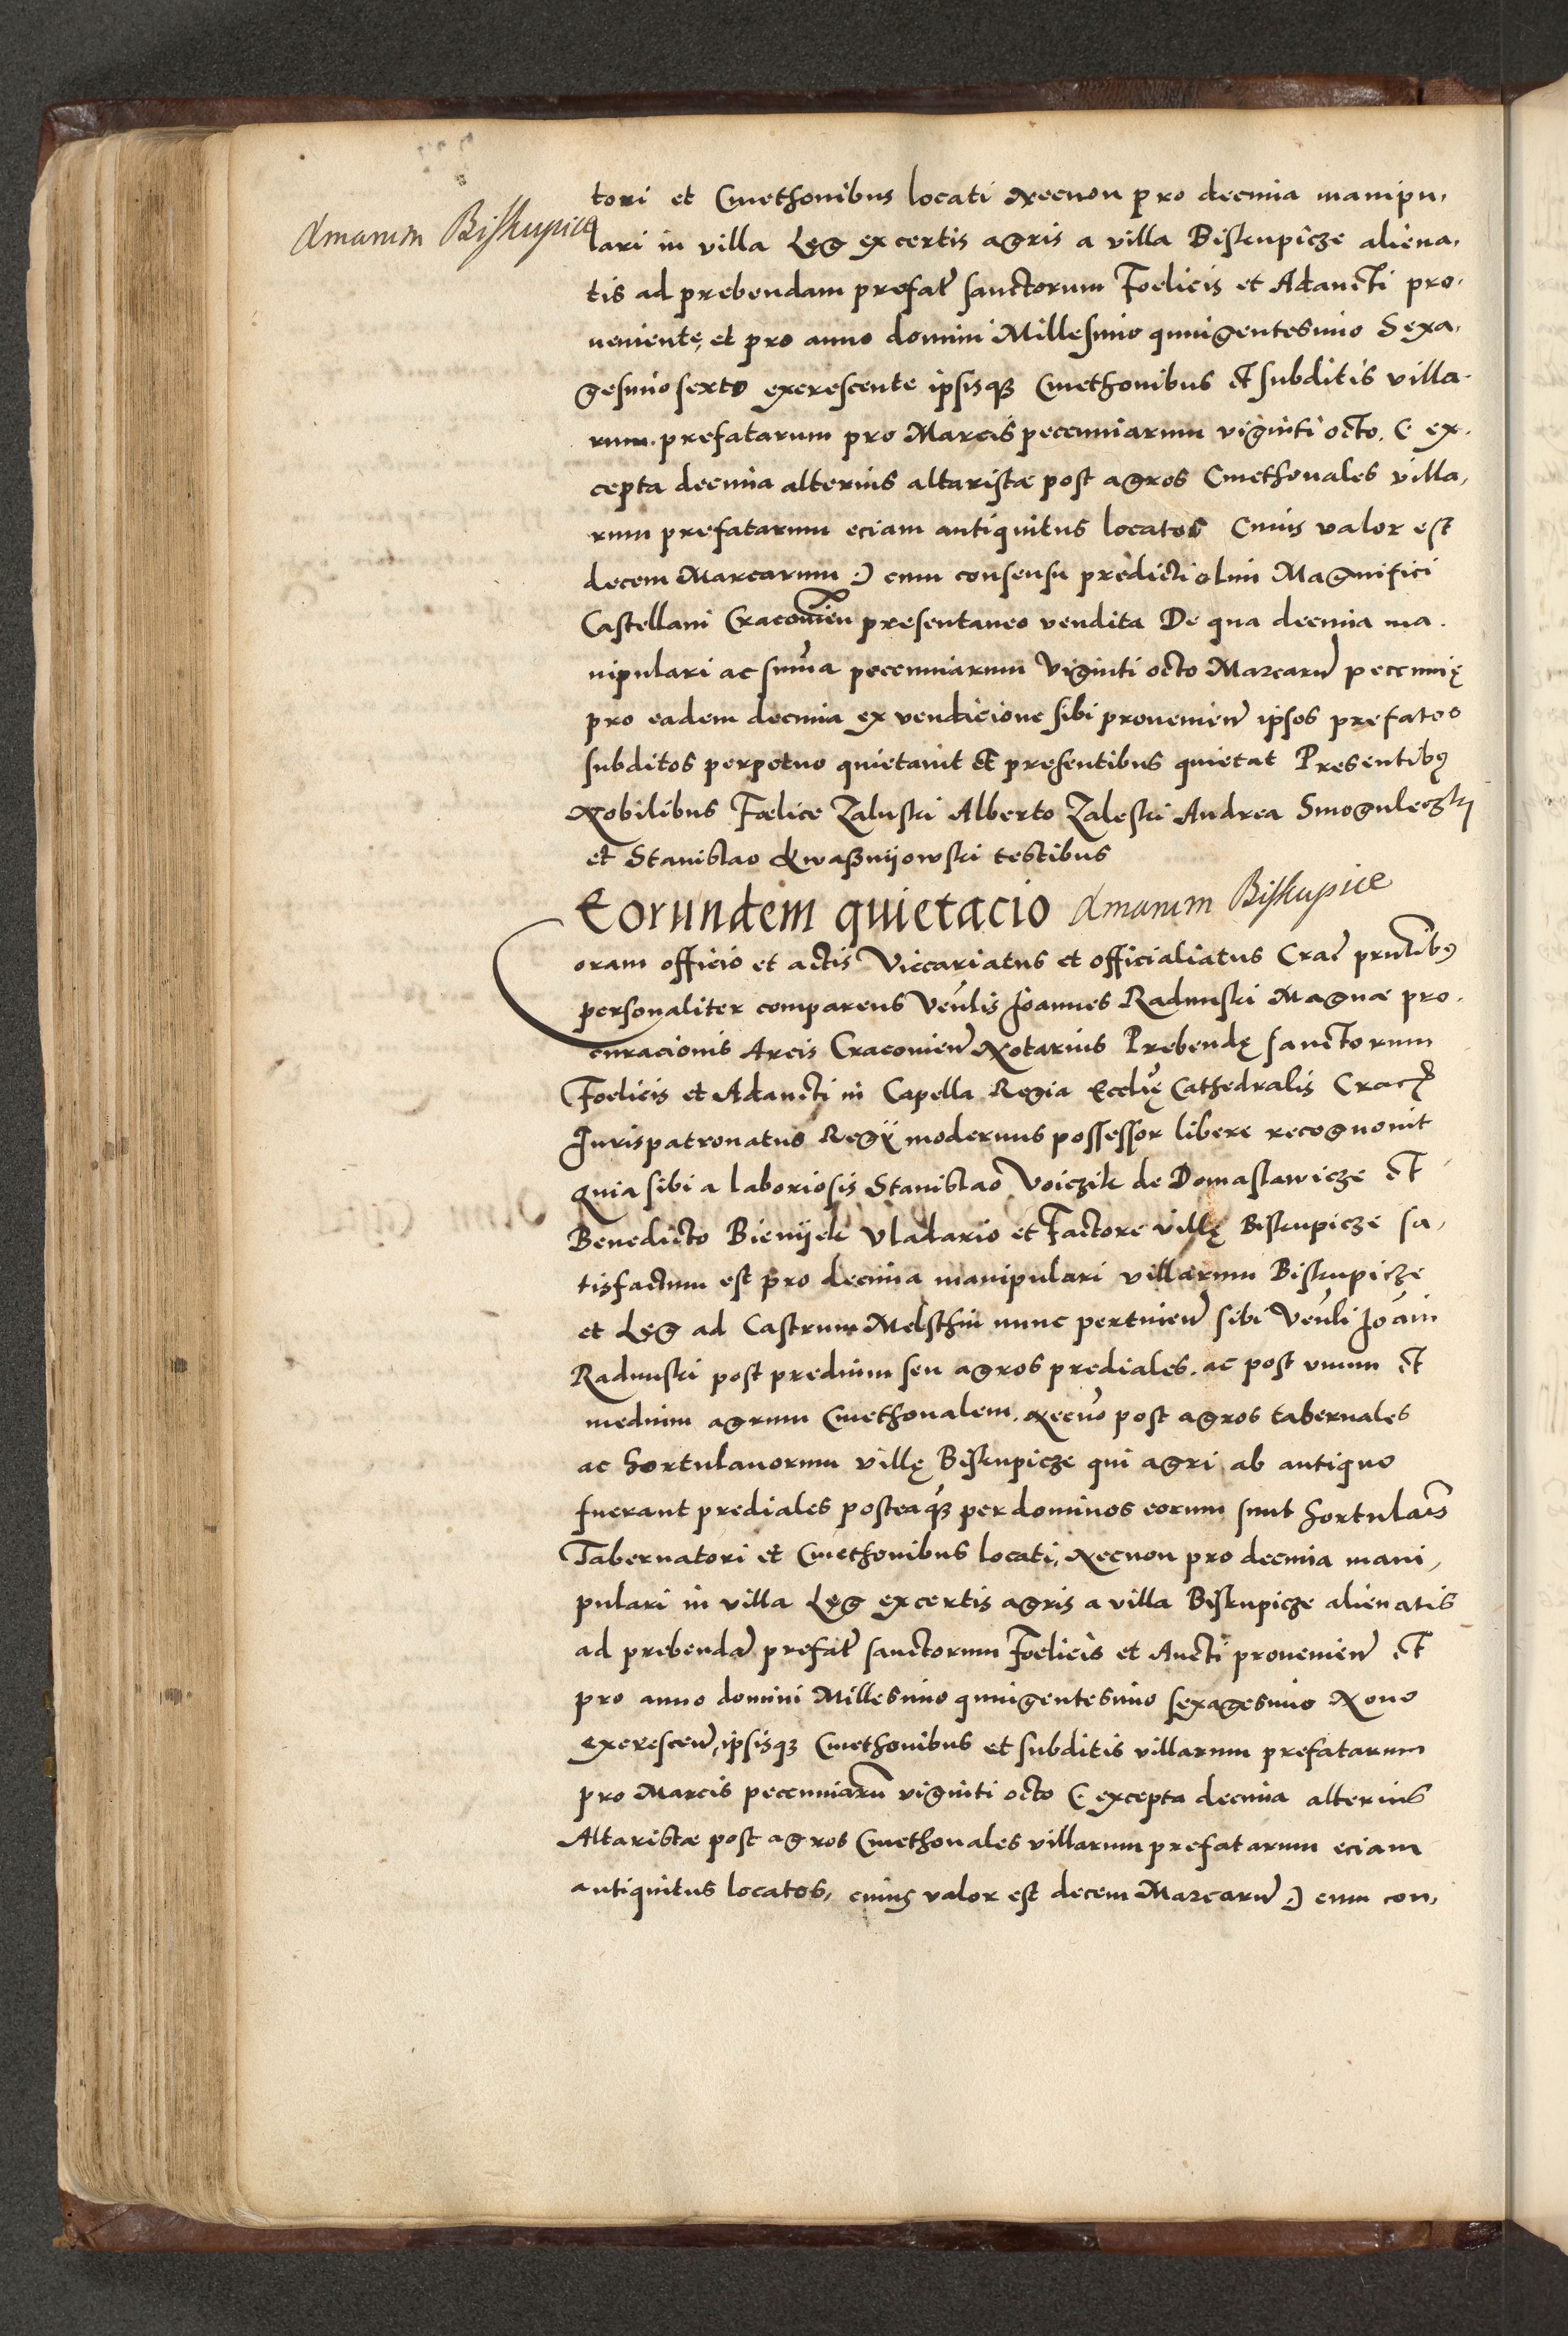 dmarum Biskupice
tori et Cmethonibus locati Necnon pro decima manipu,
lari in villa Lęg ex certis agris a villa Biskupicze aliena,
tis ad prebendam prefat sanctorum Foelicis et Adaucti pro,
veniente, et pro anno domini Millesimo quingentesimo Sexa,
gesimo sexto excrescente ipsisque Cmethonibus et subditis villa,
rum prefatarum pro Marcis pecuniarum viginti octo. (: ex,
cepta decima alterius altaristae post agros Cmethonales villa,
rum prefatarum eciam antiquitus locatos Cuius valor est
decem Marcarum :) cum consensu predicti olim Magnifici
Castellani Cracovien presentaneo vendita De qua decima ma,
nipulari ac summa pecuniarum Viginti octo Marcarum pecunię
pro eadem decima ex vendicione sibi provenien ipsos prefatos
subditos perpetuo quietavit et pręsentibus quietat Presentibus
Nobilibus Foelice Zaluski Alberto Zaleski Andrea Smoguleczki
et Stanislao Kwaßnijowski testibus
Eorundem quietacio dmarum Biskupice
Coram officio et actis Viccariatus et officialiatus Crac pntibus
personaliter comparens Venlis Joannes Radunski Magnae pro,
curacionis Arcis Cracovien Notarius Prebendę sanctorum
Foelicis et Adaucti in Capella Regia Ecclię Cathedralis Crac
Jurispatronatus Regij modernus possessor libere recognovit
Quia sibi a laboriosis Stanislao Voiczik de Domaslawicze et
Benedicto Bienijek Vladario et Factore villę Biskupicze sa,
tisfactum est pro decima manipulari villarum Biskupicze
et Lęg ad Castrum Melschtin nunc pertinen sibi Venli Joann
Radunski post predium seu agros prediales. ac post unum et
medium agrum Cmethonalem. Necno post agros tabernales
ac hortulanorum villę Biskupicze qui agri ab antiquo
fuerant prediales posteaque per dominos eorum sunt hortulanis
Tabernatori et Cmethonibus locati, Necnon pro decima mani,
pulari in villa Lęg ex certis agris a villa Biskupicze alienatis
ad prebendam prefat sanctorum Foelicis et Aucti provenien et
pro anno domini Millesimo quingentesimo sexagesimo Nono
excrescen, ipsisque Cmethonibus et subditis villarum prefatarum
pro Marcis pecuniarum viginti octo (: excepta decima alterius
Altaristae post agros Cmethonales villarum prefatarum eciam
antiquitus locatos, cuius valor est decem Marcarum :) cum con,